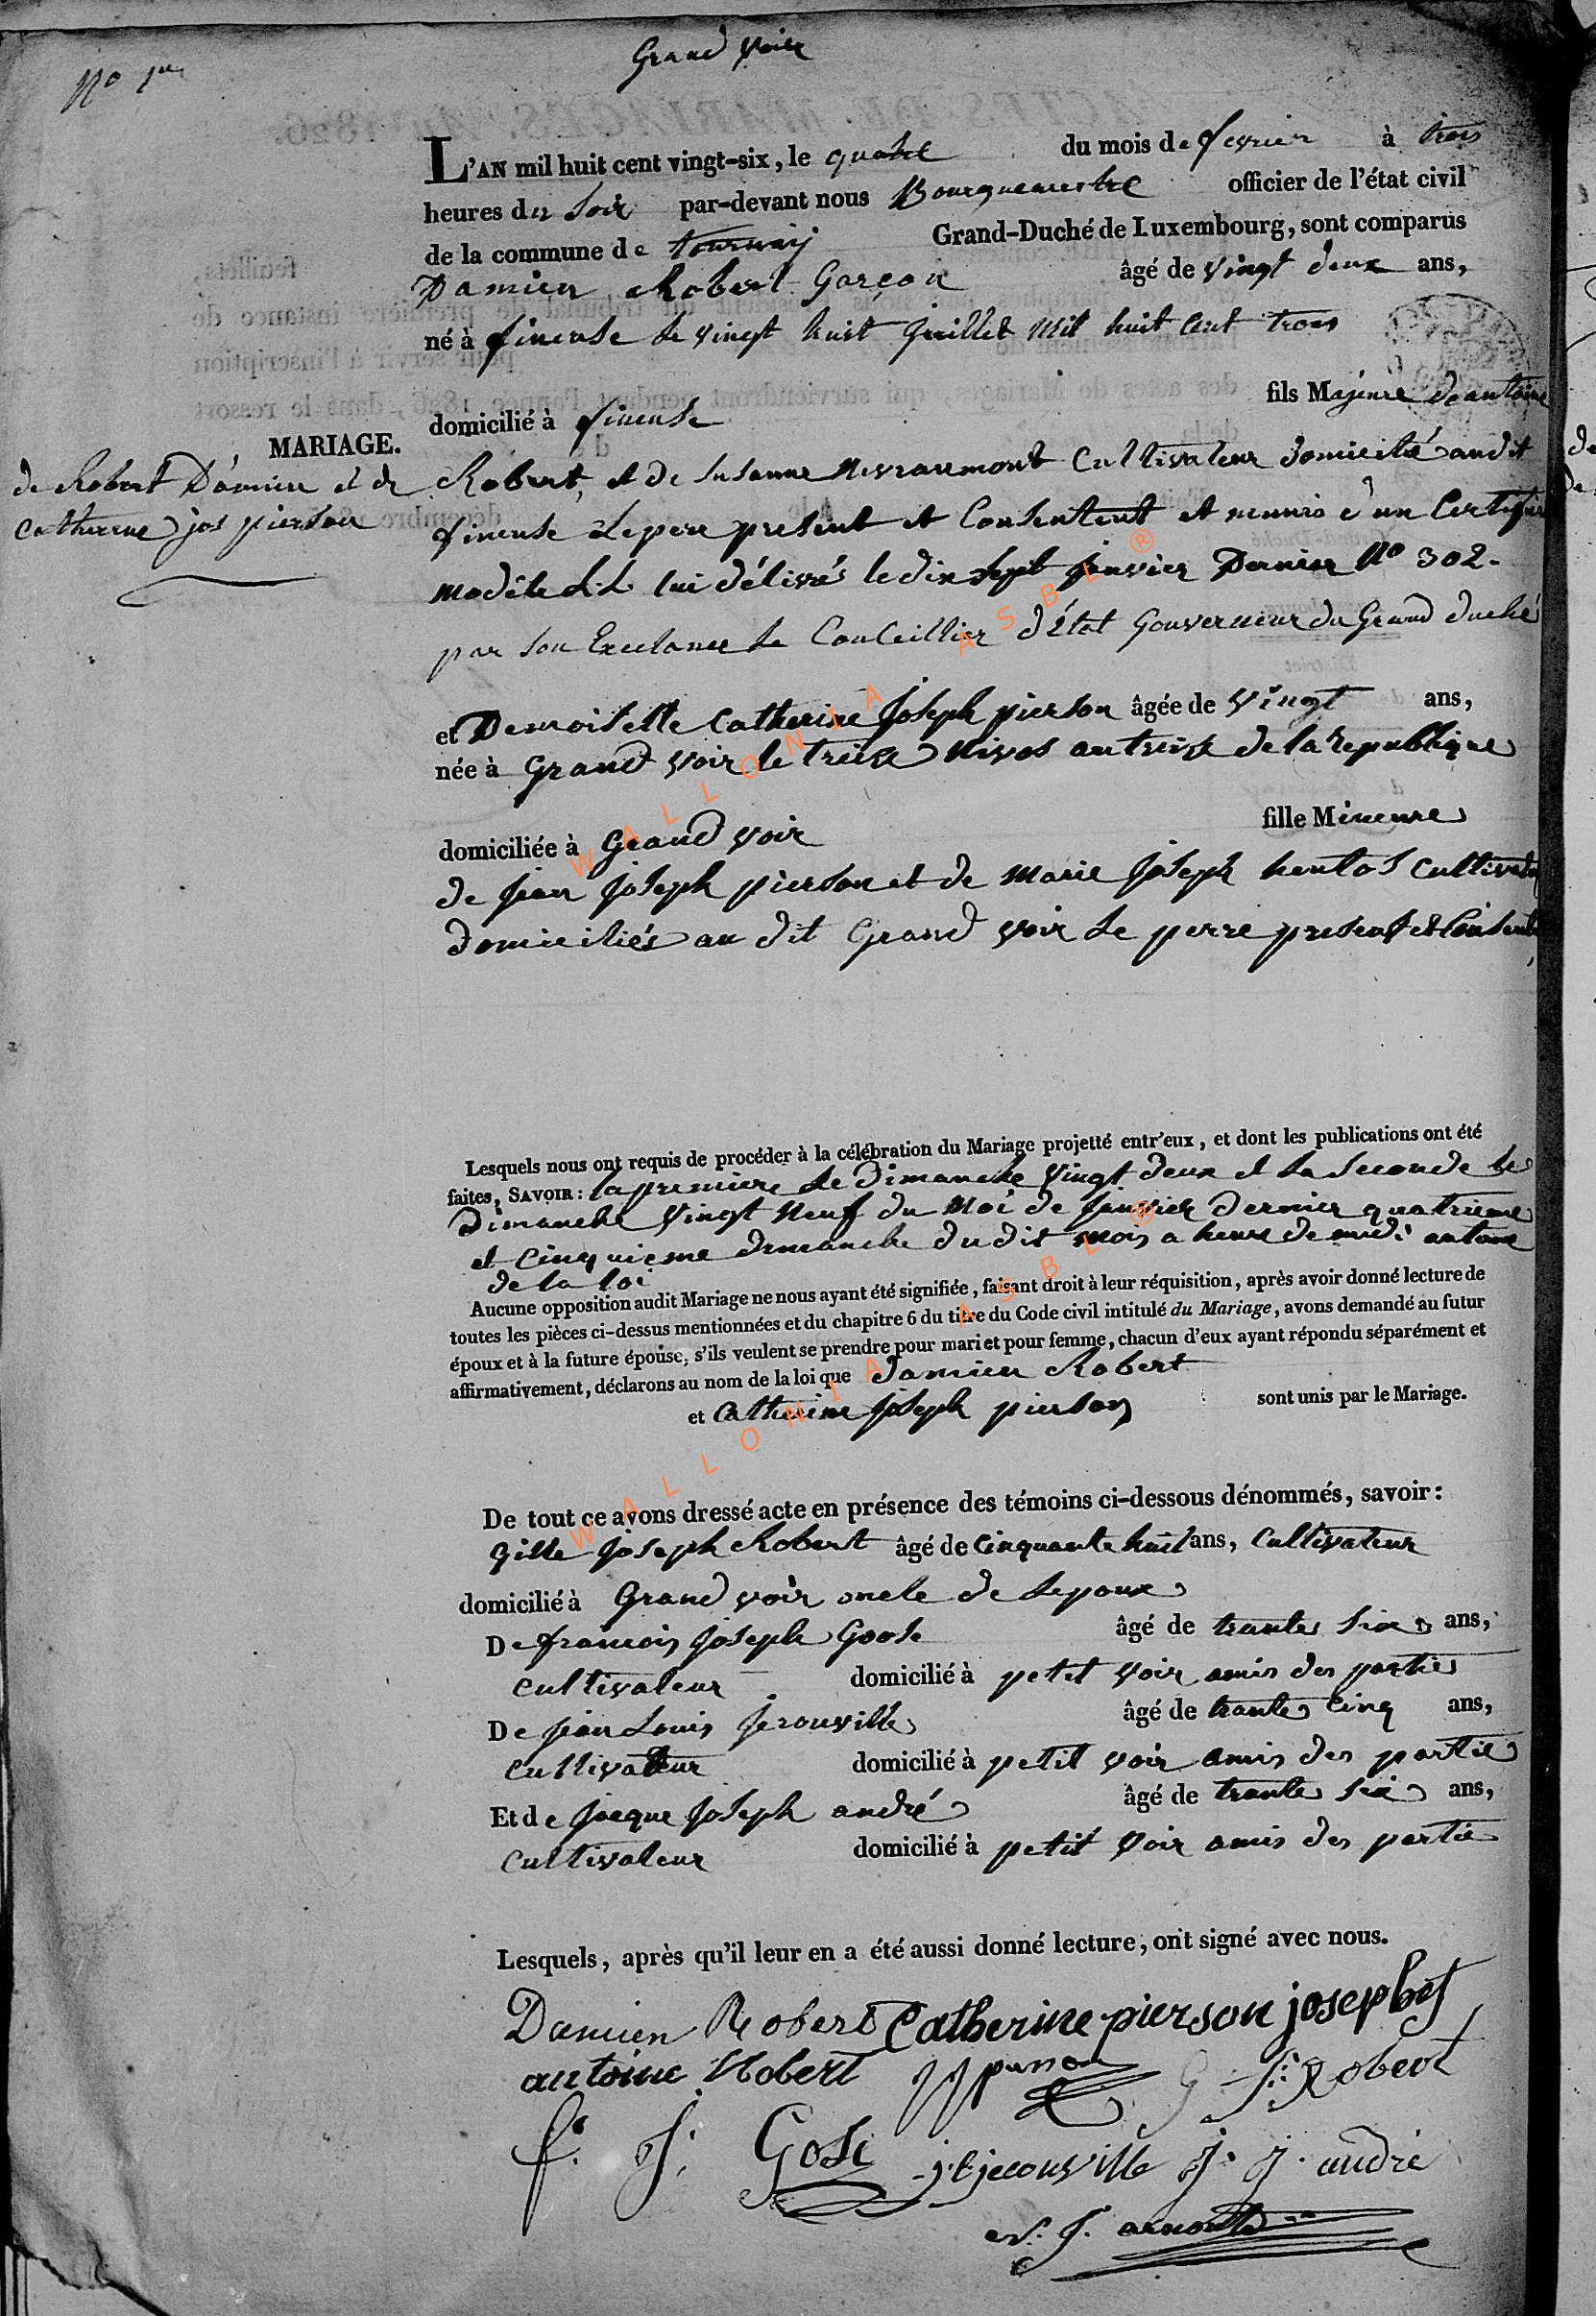 Grand Voir
No 1er
L'AN mil huit cent vingt-six, le quatre du mois de fevrier à trois
heures du Soir par-devant nous Bourguemestre officier de l'état civil
de la commune de tournay Grand-Duché de Luxembourg, sont comparus
Damien Robert Garçon âgé de vingt deux ans,
né à fineuse le vingt huit Juillet Mil huit Cent trois
domicilié à fineuse fils Majeure de antoine
MARIAGE.
de Robert Damien et de
Catherine jos pierson
Robert, et de Susanne Nevraumont Cultivateur domicilié audit
fineuse Le pere present et Consentent et munis d'un Certificat
Modèle L.L. lui délivrés le dix Sept Janvier Dernier No 302.
par son Excelance le Conceillier d'État Gouverneur du Grand duché
et Demoiselle Catherine Joseph pierson âgée de vingt ans,
née à Grand Voir le treise Nivos an treise de la republique
domiciliée à Grand Voir fille Mineure
de jean Joseph pierson et de Marie Joseph hentos Cultivateur
domiciliés au dit Grand Voir Le perre present et Consente
Lesquels nous ont requis de procéder à la célébration du Mariage projetté entr'eux, et dont les publications ont été
faites, SAVOIR: la premiere le dimanche Vingt deux et la Seconde le
dimanche Vingt Neuf du Moi de Janvier dernier quatrieme
et Cinquieme dimanche du dit mois a heure de midi au
de la loi
Aucune opposition audit Mariage ne nous ayant été signifiée, faisant droit à leur réquisition, après avoir donné lecture de
toutes les pièces ci-dessus mentionnées et du chapitre 6 du titre du Code civil intitulé du Mariage, avons demandé au futur
époux et à la future épouse, s'ils veulent se prendre pour mari et pour femme, chacun d'eux ayant répondu séparément et
affirmativement, déclarons au nom de la loi que Damien Robert
et Catherine Joseph pierson sont unis par le Mariage.
De tout ce avons dressé acte en présence des témoins ci-dessous dénommés, savoir:
Gille Joseph Robert âgé de Cinquante huit ans, Cultivateur
domicilié à Grand Voir oncle de Lepoux
De francois Joseph Goose âgé de trante Six ans,
Cultivateur domicilié à petit Voir amis des partie
De jean Louis Jerouville âgé de trante Cinq ans,
Cultivateur domicilié à petit Voir amis des partie
Et de Jacque Joseph andré âgé de trante Six ans,
Cultivateur domicilié à petit Voir amis des partie
Lesquels, après qu'il leur en a été aussi donné lecture, ont signé avec nous.
Damien Robert Catherine pierson josephet
antoine Robert JJ pierson G. J. Robert
f. J. Gose j: l jerouville J. J. andré
N. J. arnould
WALLONIA ASBL ®
WALLONIA ASBL ®